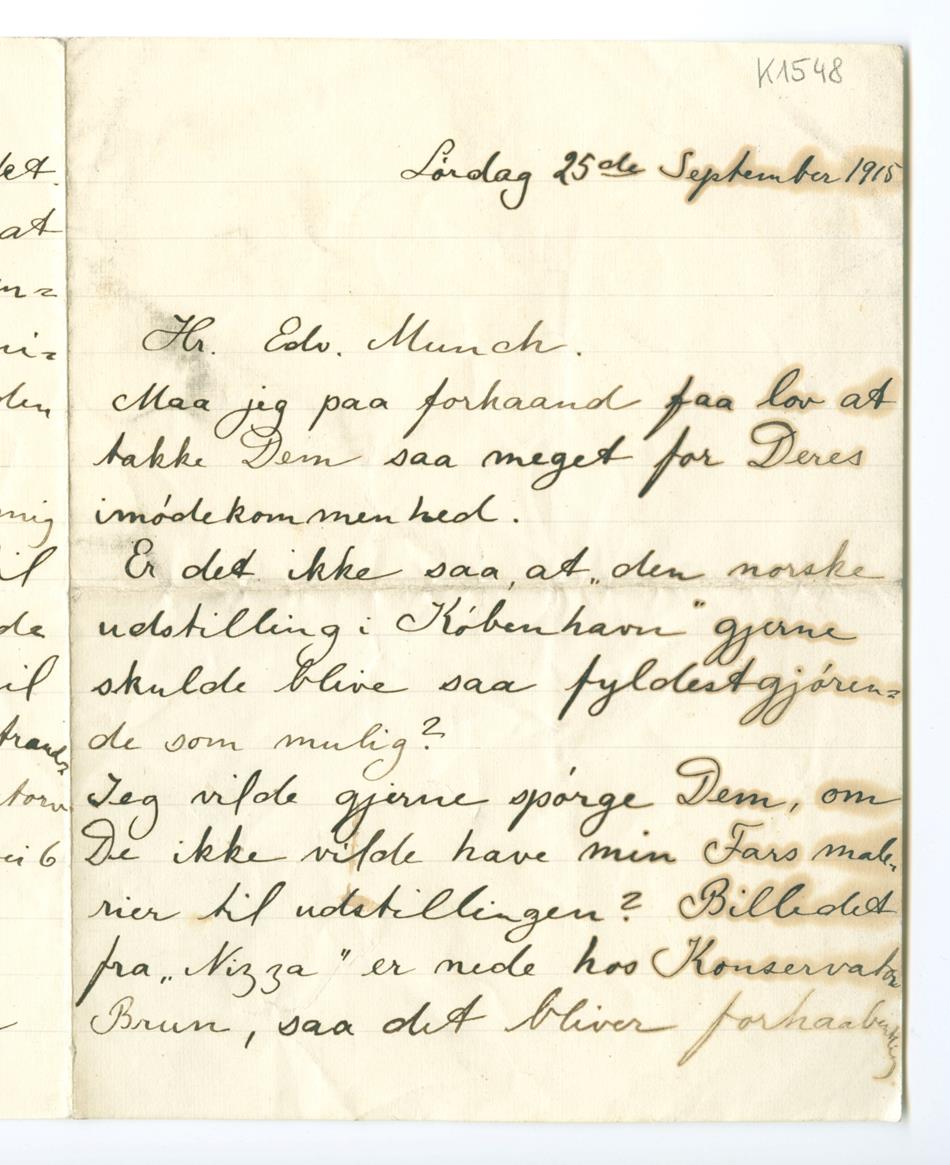 K1548
Lørdag 25de September 1915
Hr. Edv. Munch.
Maa jeg paa forhaand faa lov at
takke Dem saa meget for Deres
imødekommenhed.
Er det ikke saa, at „den norske
udstilling i København" gjerne
skulde blive saa fyldestgjøren=
de som mulig?
Jeg vilde gjerne spørge Dem, om
De ikke vilde have min Fars male=
rier til udstillingen? Billedet
fra „Nizza" er nede hos Konservator
Brun, saa det bliver forhaabentlig
at
n=
ni=
den
mig
il
de
il
torv
6